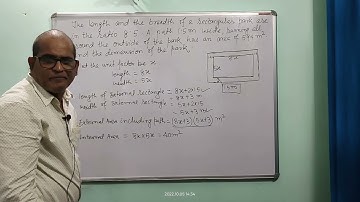 The length and the breadth of a rectangular park are
in the ratio 8:5. A path 1.5m wide running all
round the outside of the park has an area of 594 m²
find the dimension of the park.
let the unit factor be x
length = 8x
width = 5x
8x
5x
1.5m
length of External rectangle = 8x+2×1.5
= 8x+3 m
width of External rectangle
= 5x+2×1.5
= 5x+3 m
External Area including path = (8x+3)(5x+3) m²
Internal Area = 8x×5x = 40 m²
14:54